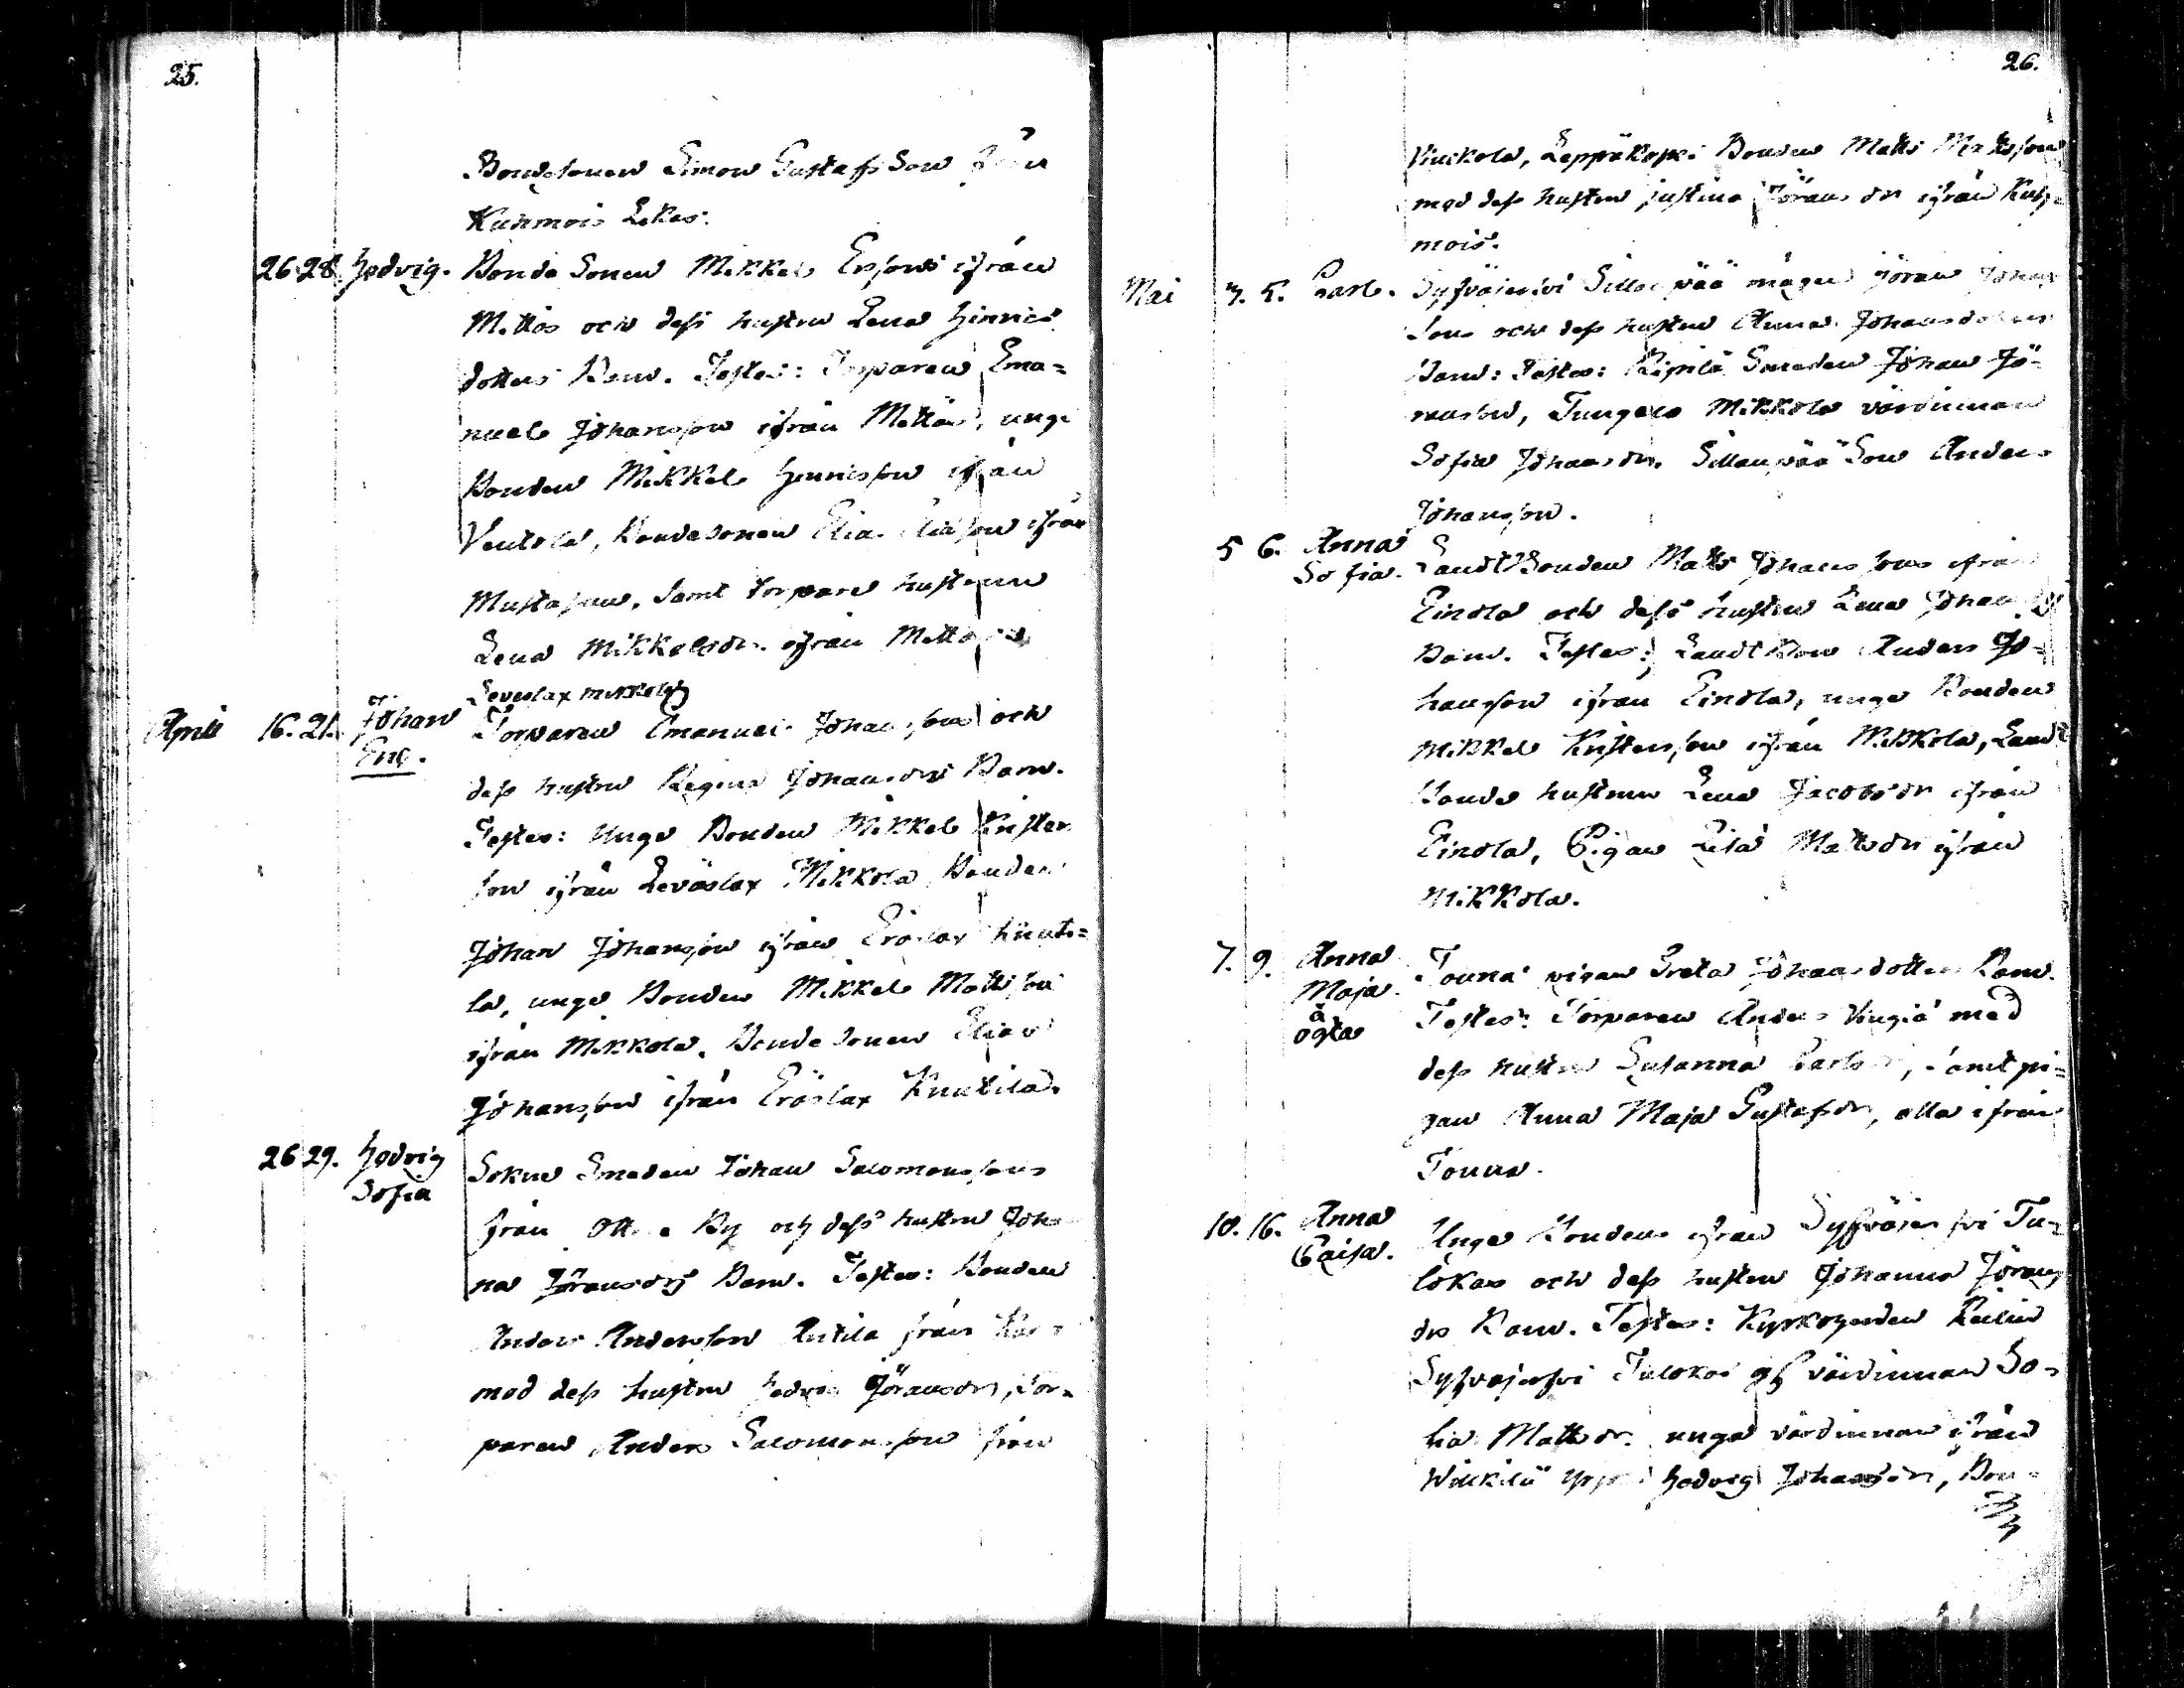 25.
Bondesonen Simon Gustafsson från
Kuhmois Lekas.
26 28. Hedvig. Bonde Sonen Mikkel Ersons ifrån
Mattås och dess hustru Lena Hinrics
dotters Barn. Testes: Torparen Ema=
nuel Johansson ifrån Mattås, unge
Bonden Mikkel Henricsson ifrån
Ventola, Bondesonen Elia Eliasson ifrån
Mustajan, samt torpare hustrun
Lena Mikkelsdr. ifrån
Leveslax Mikkola
April 16. 21. Johan Eric. Torparen Emanuel Johanssons och
dess hustru Regina Johansdrs Barn.
Testes: Unge Bonden Mikkel Krister
son ifrån Leväslax Mikkola Bonden
Johan Johansson ifrån Eräslax Knuti=
la, unge Bonden Mikkel Mattsson
ifrån Mikkola. Bonde Sonen Elias
Johansson ifrån Eräslax Knutila.
26 29. Hedvig Sofia Sokne Smeden Johan Salomonssons
från By och dess hustru Joha
na Jöransdrs Barn. Testes: Bonden
Anders Andersson Antila från
med dess hustru Hedvig Jöransdr, Tor=
paren Anders Salomonsson från
26.
Leppäkoski Bonden Matts Mattsson
med dess hustru Justina Jörans dr ifrån Kuh=
mois.
Mai 3. 5. Carl. Sysväjerfvi Sillanpää mågen Jöran Johans
Sons och dess hustru Anna Johansdotters
Barn: Testes: Smeden Johan Jö=
ransson, Mikkola värdinnan
Sofia Johansdr. Sillanpää Son Anders
Johansson.
5 6. Anna Sofia. Landtbonden Matts Johanssons ifrån
Einola och dess hustru Lena Johansdrs
Barn. Testes: Landtbon Anders Jo=
hansson ifrån Einola, unge Bonden
Mikkel Kristersson ifrån Mikkola, Landt
bonde hustrun Lena Jacobsdr ifrån
Einola, Pigan Lisa Mattsdr ifrån
Mikkola.
7. 9. Anna Maja oägta Touna pigan Greta Johansdotters Barn.
Testes: Torparen Anders med
dess hustru Susanna Carlsdr, samt pi=
gan Anna Maja Gustafsdr, alla ifrån
Touna.
10. 16. Anna Caisa. Unge Bondens ifrån Sysväjerfvi Tu=
lokas och dess hustru Johanna Jörans
drs Barn. Testes:
Sysväjerfvi Tulokas värdinnan So=
fia Mattsdr. unga värdinnan ifrån
Hedvig Johansdr, Bon=